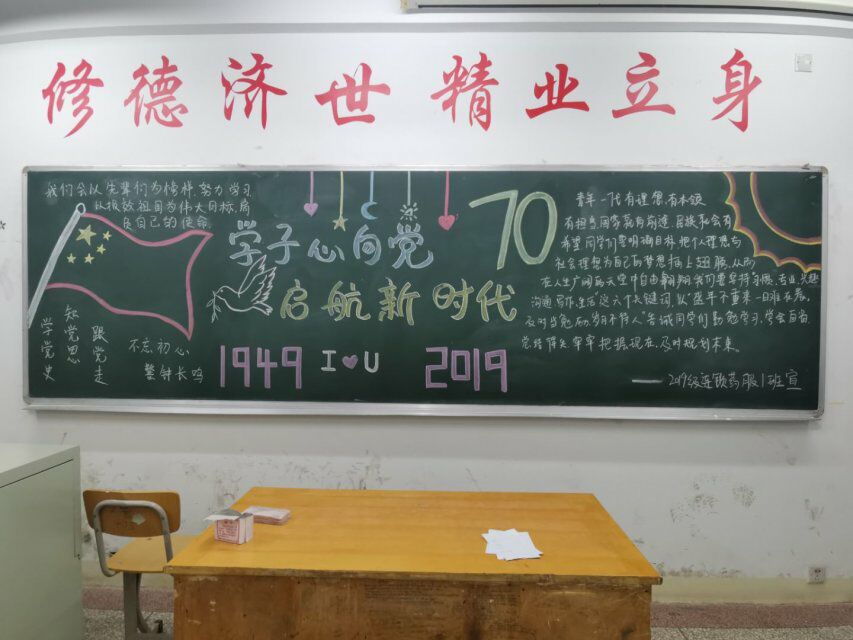 修德济世 精业立身
我们会以先辈们为榜样,努力学习
以报效祖国为伟大目标,肩
负自己的使命
学子心向党
启航新时代
1949 I♥U 2019
70
学党史
知党恩
跟党走
不忘初心
警钟长鸣
青年一代有理想,有本领
有担当,国家就有前途,民族就会有
希望.同学们要明确目标,把个人理想与
社会理想为自己的梦想插上翅膀,从而
在人生广阔的天空中自由翱翔.我们要坚持习惯、专业、兴趣
沟通、写作、生活"这六个关键词,以"盛年不重来,一日难再晨,
及时当勉励,岁月不待人"告诫同学们勤勉学习,学会自省,
总结得失,牢牢把握现在,及时规划未来.
——2019级连锁药服1班宣